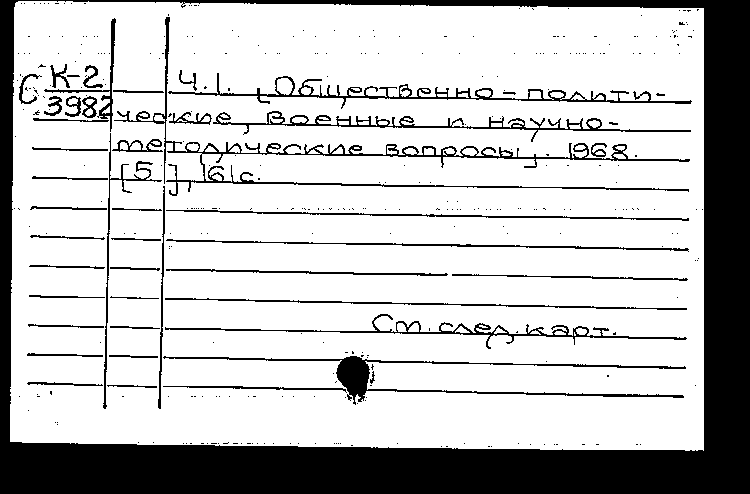 С К-2 Ч.1. [Общественно-полити-
3982 ческие, военные и научно-
методические вопросы]. 1968.
[5], 161 с.
См. след. карт.